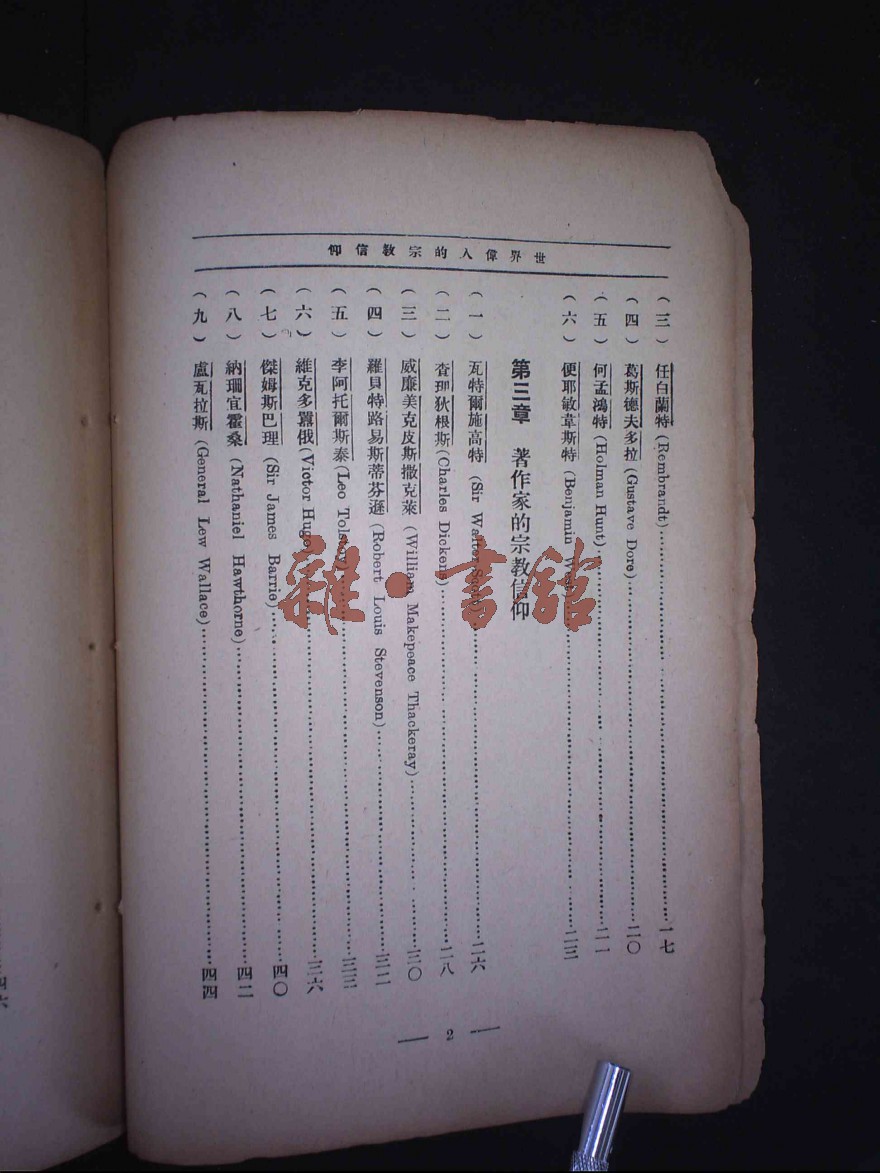 世界偉人的宗教信仰
（三）任白蘭特 (Rembrandt)……一七
（四）葛斯德夫多拉 (Gustave Dore)……二〇
（五）何孟鴻特 (Holman Hunt)……二一
（六）便耶敏韋斯特 (Benjamin West)……二三
第三章　著作家的宗教信仰
（一）瓦特爾施高特 (Sir Walter Scott)……二六
（二）查理狄根斯 (Charles Dickens)……二八
（三）威廉美克皮斯撒克萊 (William Makepeace Thackeray)……三〇
（四）羅貝特路易斯蒂芬遜 (Robert Louis Stevenson)……三二
（五）李阿托爾斯泰 (Leo Tolstoy)……三三
（六）維克多囂俄 (Victor Hugo)……三六
（七）傑姆斯巴理 (Sir James Barrie)……四〇
（八）納珊宜霍桑 (Nathaniel Hawthorne)……四二
（九）盧瓦拉斯 (General Lew Wallace)……四四
— 2 —
雜·書館